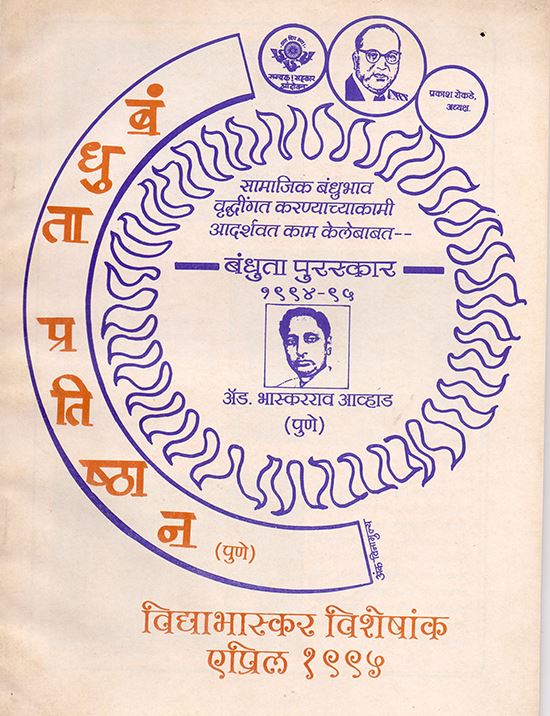 बंधुता प्रतिष्ठान
(पुणे)
सम्यक सहकार
आंदोलन
प्रकाश रोकडे,
अध्यक्ष.
सामाजिक बंधुभाव
वृद्धींगत करण्याच्याकामी
आदर्शवत काम केलेबाबत--
बंधुता पुरस्कार
१९९४-९५
ॲड. भास्करराव आव्हाड
(पुणे)
अंक विनामुल्य
विद्याभास्कर विशेषांक
एप्रिल १९९५